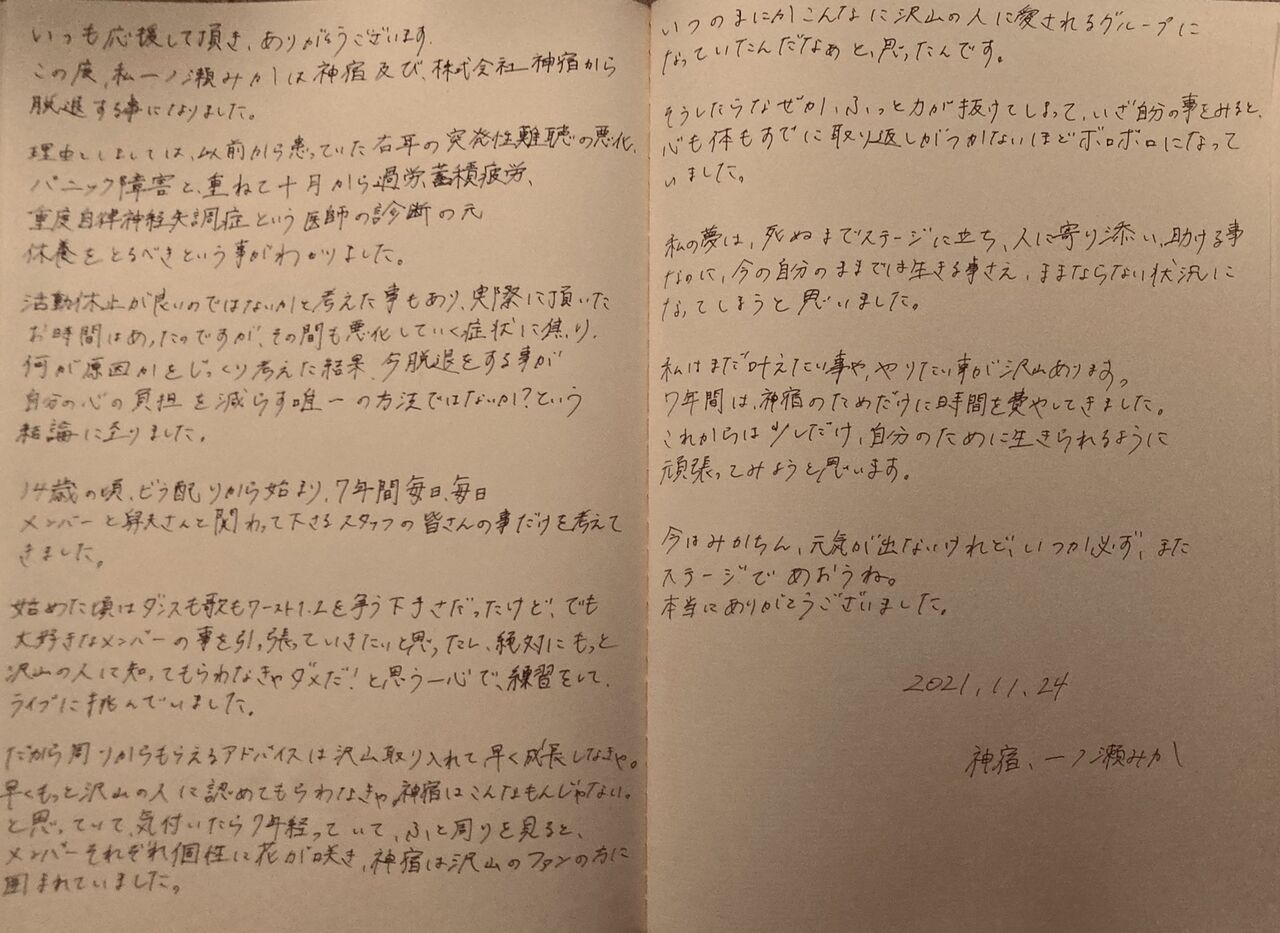 いつも応援して頂き、ありがとうございます。
この度、私一ノ瀬みかは神宿及び、株式会社神宿から
脱退する事になりました。
理由としましては、以前から患っていた右耳の突発性難聴の悪化、
パニック障害と、重ねて十月から過労、蓄積疲労、
重度自律神経失調症という医師の診断の元
休養をとるべきという事がわかりました。
活動休止が良いのではないかと考えた事もあり、実際に頂いた
お時間はあったのですが、その間も悪化していく症状に焦り、
何が原因かをじっくり考えた結果、今脱退をする事が
自分の心の負担を減らす唯一の方法ではないか?という
結論に至りました。
14歳の頃、どう配りから始まり、7年間毎日、毎日
メンバーと昇夫さんと関わって下さるスタッフの皆さんの事だけを考えて
きました。
始めた頃はダンスも歌もワースト1.2を争う下手さだったけど、でも
大好きなメンバーの事を引っ張っていきたいと思ったし、絶対にもっと
沢山の人に知ってもらわなきゃダメだ!と思う一心で、練習をして、
ライブに挑んでいました。
だから周りからもらえるアドバイスは沢山取り入れて早く成長しなきゃ。
早くもっと沢山の人に認めてもらわなきゃ。神宿はこんなもんじゃない。
と思っていて、気付いたら7年経っていて、ふと周りを見ると、
メンバーそれぞれ個性に花が咲き、神宿は沢山のファンの方に
囲まれていました。
いつのまにかこんなに沢山の人に愛されるグループに
なっていたんだなぁと、思ったんです。
そうしたらなぜか、ふっと力が抜けてしまって、いざ自分の事をみると、
心も体もすでに取り返しがつかないほどボロボロになって
いました。
私の夢は、死ぬまでステージに立ち、人に寄り添い、助ける事
なのに、今の自分のままでは生きる事さえ、ままならない状況に
なってしまうと思いました。
私はまだ叶えたい事や、やりたい事が沢山あります。
7年間は、神宿のためだけに時間を費やしてきました。
これからは少しだけ、自分のために生きられるように
頑張ってみようと思います。
今はみかちん、元気が出ないけれど、いつか必ず、また
ステージであおうね。
本当にありがとうございました。
2021.11.24
神宿、一ノ瀬みか